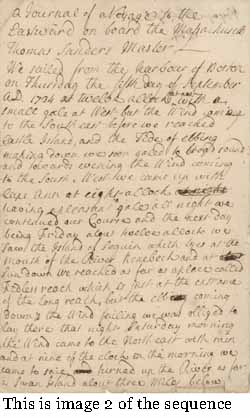 A Journal of a Voyage to the
Eastward on board the Massachusets
Thomas Sanders Master
We sailed from the harbour of Boston
on Thursday the fifth day of September
A.D. 1734 at twelve a clock with a
small gale at West but the Wind coming
to the South east before we reached
Castle Island, and the Tide of ebbing
making down, we run
and towards evening the Wind coming
to the South West we came up with
Cape Ann at eight a clock
having a pleasant gale all night we
continued our Course and the next day
being Friday about twelve a clock we
the Island of Seguin which lyes at the
mouth of the River Kenebeck and at
Sundown we reached as far as a place called
reach which is just at the entrance
of the long reach, but the ebb coming
down & the Wind failing we was obliged to
lay there that night Saturday morning
the Wind came to the North east with rain
and at nine of the clock in the morning we
came to sail turned up the River as far
as Swan Island about three Miles below
This is image 2 of the sequence